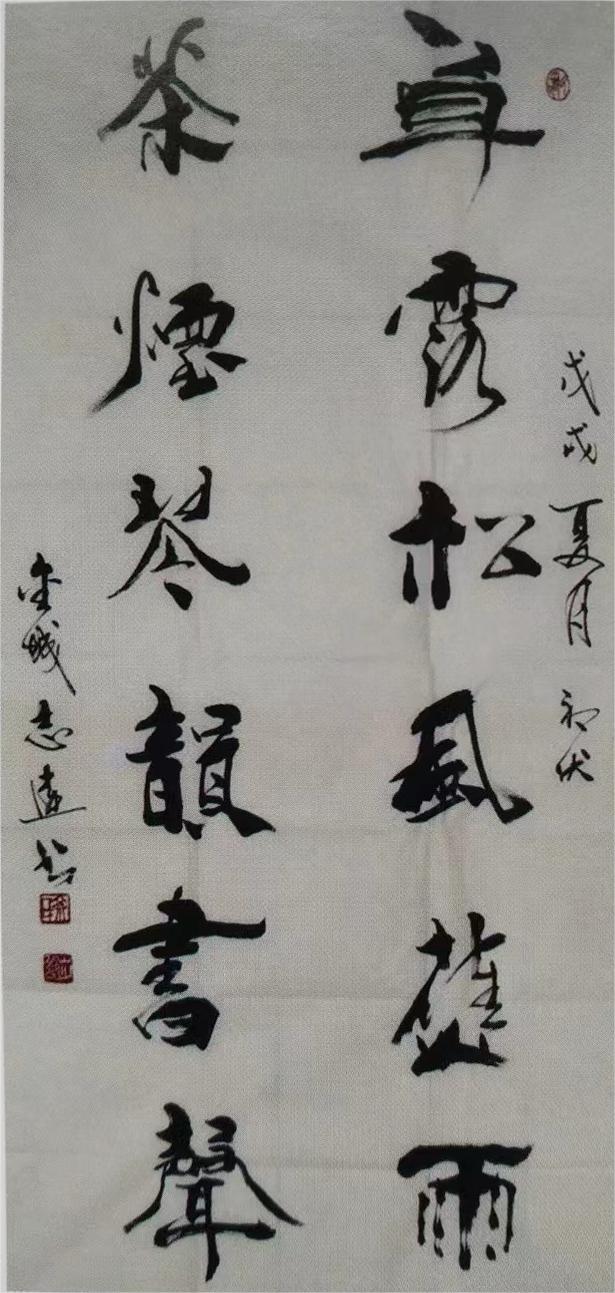 草露松風蕉雨
戊戌夏月 初伏
茶煙琴韻書聲
金城志遠书